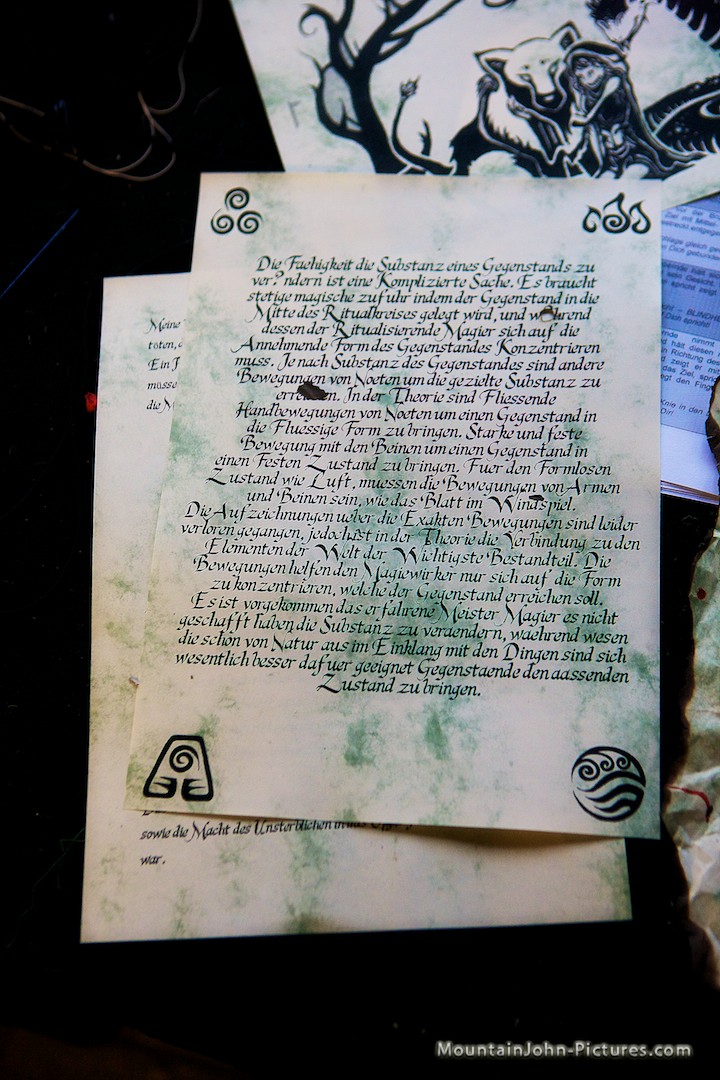 Die Faehigkeit die Substanz eines Gegenstands zu
ver?ndern ist eine Komplizierte Sache. Es braucht
stetige magische zufuhr indem der Gegenstand in die
Mitte des Ritualkreises gelegt wird, und während
dessen der Ritualisierende Magier sich auf die
Annehmende Form des Gegenstandes Konzentrieren
muss. Je nach Substanz des Gegenstandes sind andere
Bewegungen von Noeten um die gezielte Substanz zu
In der Theorie sind Fliessende
Handbewegungen von Noeten um einen Gegenstand in
die Fluessige Form zu bringen. Starke und feste
Bewegung mit den Beinen um einen Gegenstand in
einen Festen Zustand zu bringen. Fuer den Formlosen
Zustand wie Luft, muessen die Bewegungen von Armen
und Beinen sein, wie das Blatt im Windspiel.
Die Aufzeichnungen ueber die Exakten Bewegungen sind leider
verloren gegangen, jedoch ist in der Theorie die Verbindung zu den
Elementen der Welt der Wichtigste Bestandteil. Die
Bewegungen helfen den Magiewirker nur sich auf die Form
zu konzentrieren, welche der Gegenstand erreichen soll.
Es ist vorgekommen das erfahrene Meister Magier es nicht
geschafft haben die Substanz zu veraendern, waehrend wesen
die schon von Natur aus im Einklang mit den Dingen sind sich
wesentlich besser dafuer geeignet Gegenstaende den aassenden
Zustand zu bringen.
Meine
toten,
Ein
müsse
die
sowie die Macht des Unsterblichen in
war.
MountainJohn-Pictures.com